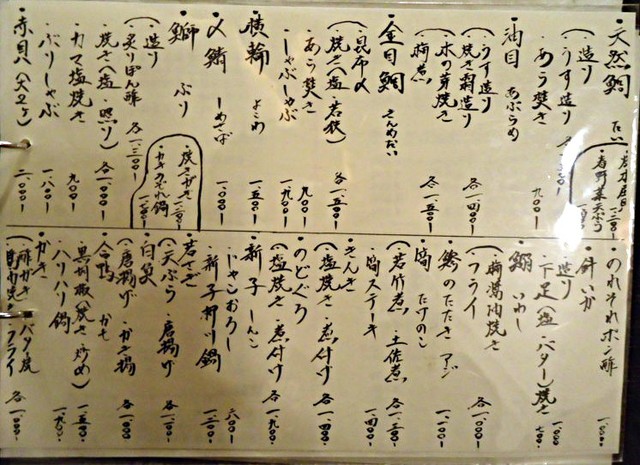 ・天然鯛 たい
・造り
・うす造り 各一、三〇〇ー
・あら焚き 九〇〇ー
・油目 あぶらめ
・うす造り
・焼き霜造り 各一、四〇〇ー
・木の芽焼き
・筍煮 各一、五〇〇ー
・金目鯛 きんめだい
・昆布〆
・焼き(塩・若狭) 各一、五〇〇ー
・あら焚き 九〇〇ー
・しゃぶしゃぶ 一、九〇〇ー
・横輪 よこわ 一、五〇〇ー
・〆鯖 しめさば 一、〇〇〇ー
・鰤 ぶり
・造り
・炙りぽん酢 各一、三〇〇ー
・焼き(塩・照り) 各一、〇〇〇ー
・カマ塩焼き 九〇〇ー
・ぶりしゃぶ 一、八〇〇ー
・赤貝(大2ヶ) 二、〇〇〇ー
春野菜天ぷら
・焼きがき
・カキみぞれ鍋
・のれそれポン酢 一、〇〇〇ー
・針いか
・造り
・下足(塩・バター)焼き 七〇〇ー
・鰯 いわし
・梅醤油焼き
・フライ 各一、〇〇〇ー
・鯵のたたき アジ 一、一〇〇ー
・筍 たけのこ
・若竹煮・土佐煮 各一、三〇〇ー
・筍ステーキ 一、四〇〇ー
・きんき
・塩焼き・煮付け 各一、四〇〇ー
・のどぐろ
・塩焼き・煮付け 各一、九〇〇ー
・新子 しんこ
・じゃこおろし 六〇〇ー
・新子柳川鍋 一、三〇〇ー
・若さぎ
・天ぷら・唐揚げ 各一、一〇〇ー
・白魚
・唐揚げ・かき揚 各一、〇〇〇ー
・合鴨 かも
・黒胡椒(焼き・炒め) 一、五〇〇ー
・ハリハリ鍋 一、九〇〇ー
・かき
・酢がき・バタ焼
・フライ 各一、〇〇〇ー